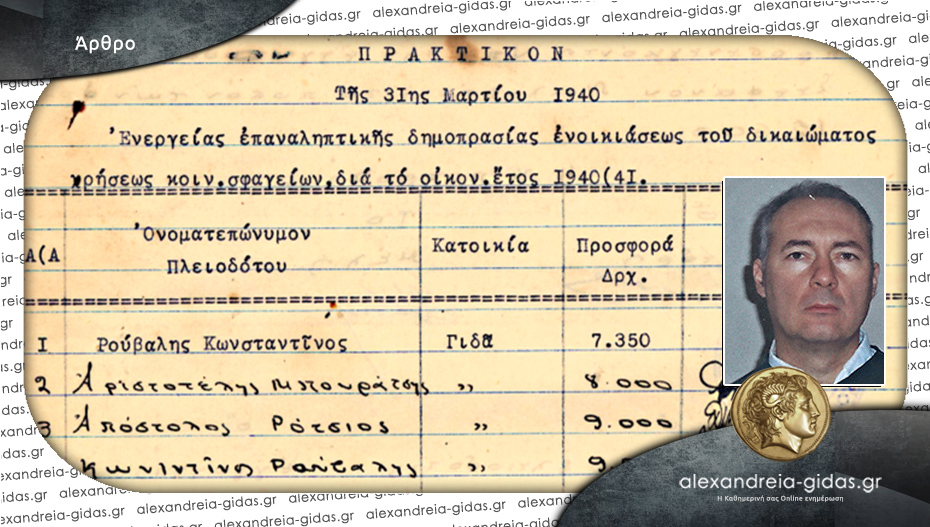 Άρθρο
ΠΡΑΚΤΙΚΟΝ
Τῆς 3Ιης Μαρτίου Ι940
Ἐνεργείας ἐπαναληπτικῆς δημοπρασίας ἐνοικιάσεως τοῦ δικαιώματος
χρήσεως κοιν.σφαγείων,διά τό οἰκον.ἔτος Ι940(4Ι.
Α(Α Ὀνοματεπώνυμον Πλειοδότου Κατοικία Προσφορά Δρχ.
Ι Ρούβαλης Κωνσταντῖνος Γιδᾶ 7.350
2 Ἀριστοτέλης Μπουράτσης ,, 8.000
3 Ἀπόστολος Ρότσιος ,, 9.000
Ρούβαλης ,,
alexandreia-gidas.gr
Η Καθημερινή σας Online ενημέρωση